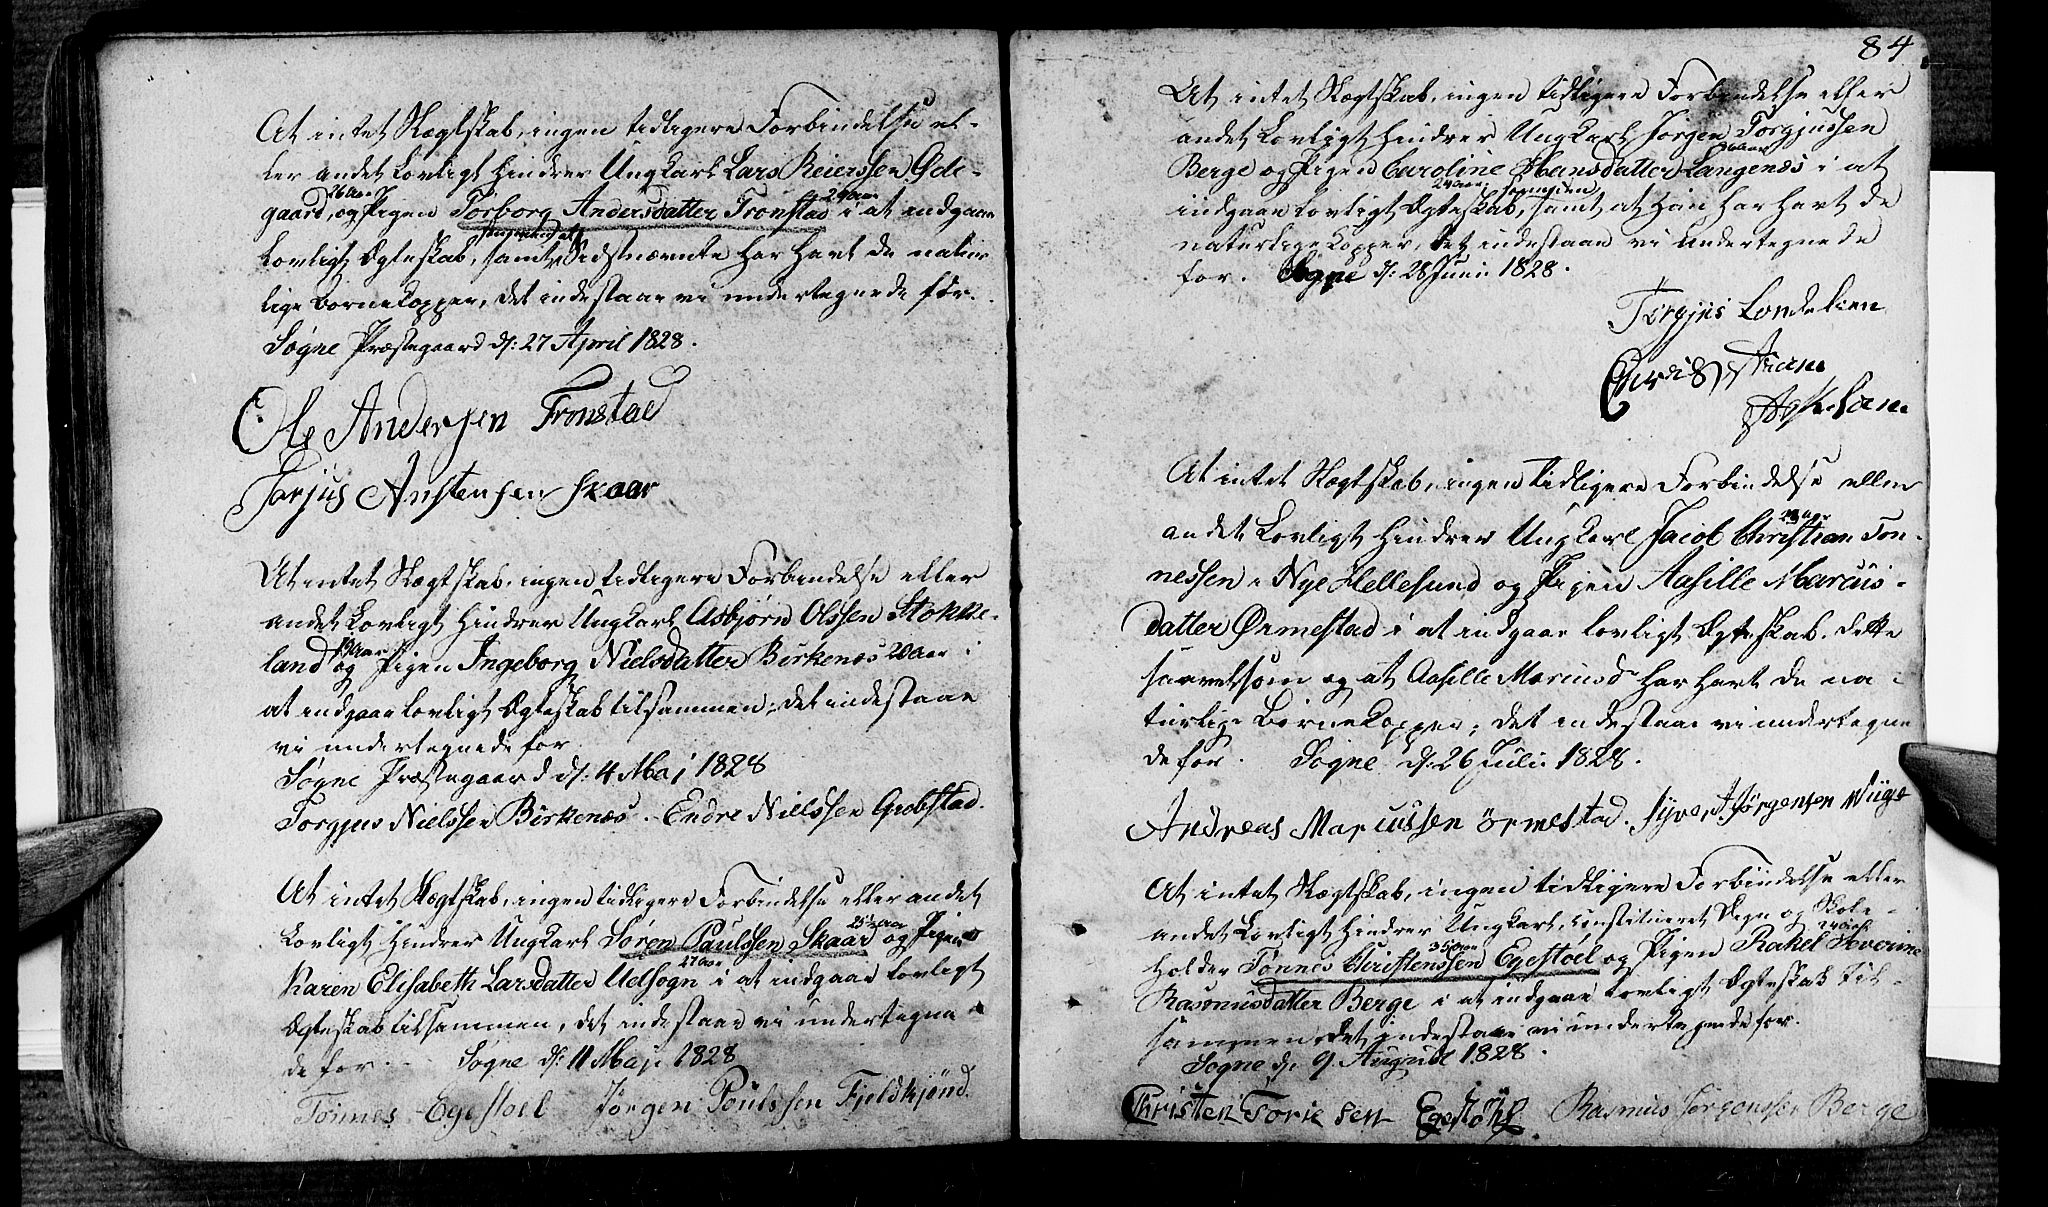 At intet Slægtskab, ingen tidligere Forbindelse el-
ler andet Lovligt hindrer Ungkarl Lars Reierssen Ode-
26 Aar 24 Aar
gaard, og Pigen Torborg Andersdatter Tronstad i at indgaae
Lovligt Ægteskab, samt at Sidstnævnte har havt de natur
lige Børnekopper, det indestaae vi undertegnede for.
Søgne Præstegaard d: 27 April 1828.
Ole Andersen Tronstad
Tarjus Anstensen Skaar
At intet Slægtskab, ingen tidligere Forbindelse eller
andet Lovligt hindrer Ungkarl Asbjørn Olssen Stokke-
land og Pigen Ingeborg Nielsdatter Birkenæs 20 Aar i
at indgaae lovligt Ægteskab tilsammen, det indestaae
vi undertegnede for.
Søgne Præstegaard d: 4 Maj 1828
Torgjus Nielssen Birkenæs. Endre Nielssen Grobstad.
At intet Slægtskab, ingen tidligere Forbindelse eller andet
Lovligt hindrer Ungkarl Søren Paulssen Skaar og Pigen
27 Aar
Karen Elisabeth Larsdatter Udsøgn i at indgaae lovligt
Ægteskab tilsammen, det indestaae vi undertegne
de for. Søgne d: 11 Maji 1828
Tønnes Egestoel Jørgen Poulssen Fjeldkjønd.
84
At intet Slægtskab, ingen tidligere Forbindelse eller
andet Lovligt hindrer Ungkarl Jørgen Torgjussen
Berge og Pigen Caroline Hansdatter Langenæs i at
24 Aar
indgaae lovligt Ægteskab, samt at hun har havt de
naturlige Kopper, det indestaae vi undertegnede
for. Søgne d: 28 Juni 1828.
Torgjus Londelien
At intet Slægtskab, ingen tidligere Forbindelse eller
andet Lovligt hindrer Ungkarl Jacob Christian Ton-
nessen i Nye Hellesund og Pigen Aasille Marcus-
datter Ørmestad i at indgaae lovligt Ægteskab, dette
saavelsom og at Aasille Marcusd har havt de na-
turlige Børnekopper; det indestaae vi undertegne
de for. Søgne d: 26 Juli 1828.
Andreas Marcussen Örmestad. Syvert Jørgensen
At intet Slægtskab, ingen tidligere Forbindelse eller
andet Lovligt hindrer Ungkarl, constitueret Degn og Skole-
35 Aar 24 Aar
holder Tønnes Christenssen Egestøel og Pigen Rakel Severine
Rasmusdatter Berge i at indgaae lovligt Ægteskab til-
sammen, det indestaae vi undertegnede for.
Søgne d. 9 August 1828.
Christen Torie sen Egestöhl Rasmus Jørgenssen Berge